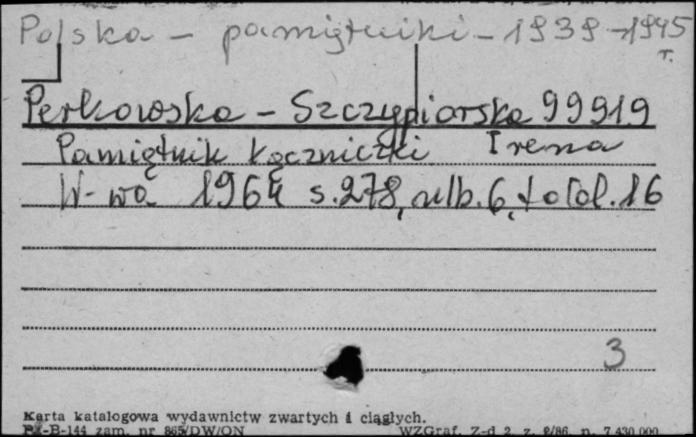 Polska - pamiętniki - 1939-1945
r.
Perkowska - Szczypiorska 99919
Pamiętnik łączniczki Irena
W-wa 1964 s. 278, nlb. 6, fotol. 16
3
Karta katalogowa wydawnictw zwartych i ciągłych.
Pu-B-144 zam. nr 865/DW/ON WZGraf. Z-d 2 z. 2/86 n. 7.430.000